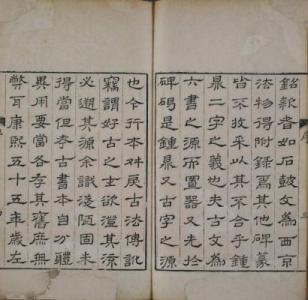 銘款者如石鼓文為西京
法物得附錄焉其他碑篆
皆不收采以其不合乎鍾
鼎二字之義也夫古文為
六書之源而置器又先於
碑碣是鍾鼎又古字之源
也今行本舛戾古法傳訛
竊謂好古之士欲澄其流
必遡其源余識淺陋固未
得當但古書本自分體
異用要當各存其舊庶無
弊耳康熙五十五年歲在